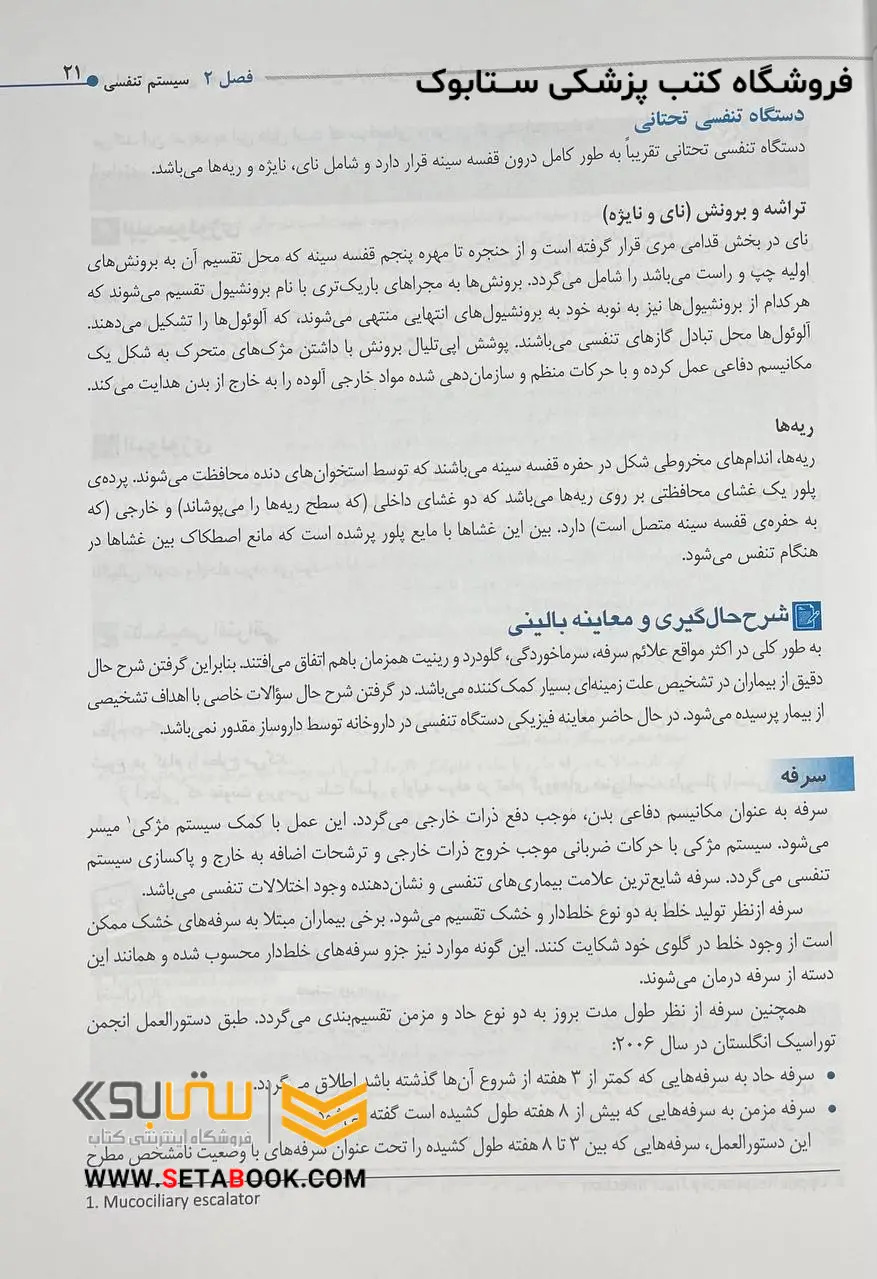 فصل ۲ سیستم تنفسی ۲۱
فروشگاه کتب پزشکی ســتابوک
دستگاه تنفسی تحتانی
دستگاه تنفسی تحتانی تقریباً به طور کامل درون قفسه سینه قرار دارد و شامل نای، نایژه و ریه‌ها می‌باشد.
تراشه و برونش (نای و نایژه)
نای در بخش قدامی مری قرار گرفته است و از حنجره تا مهره پنجم قفسه سینه که محل تقسیم آن به برونش‌های
اولیه چپ و راست می‌باشد را شامل می‌گردد. برونش‌ها به مجراهای باریک‌تری با نام برونشیول تقسیم می‌شوند که
هرکدام از برونشیول‌ها نیز به نوبه خود به برونشیول‌های انتهایی منتهی می‌شوند، که آلوئول‌ها را تشکیل می‌دهند.
آلوئول‌ها محل تبادل گازهای تنفسی می‌باشند. پوشش اپی‌تلیال برونش با داشتن مژک‌های متحرک به شکل یک
مکانیسم دفاعی عمل کرده و با حرکات منظم و سازمان‌دهی شده مواد خارجی آلوده را به خارج از بدن هدایت می‌کند.
ریه‌ها
ریه‌ها، اندام‌های مخروطی شکل در حفره قفسه سینه می‌باشند که توسط استخوان‌های دنده محافظت می‌شوند. پرده‌ی
پلور یک غشای محافظتی بر روی ریه‌ها می‌باشد که دو غشای داخلی (که سطح ریه‌ها را می‌پوشاند) و خارجی (که
به حفره‌ی قفسه سینه متصل است) دارد. بین این غشاها با مایع پلور پرشده است که مانع اصطکاک بین غشاها در
هنگام تنفس می‌شود.
شرح‌حال‌گیری و معاینه بالینی
به طور کلی در اکثر مواقع علائم سرفه، سرماخوردگی، گلودرد و رینیت همزمان باهم اتفاق می‌افتند. بنابراین گرفتن شرح حال
دقیق از بیماران در تشخیص علت زمینه‌ای بسیار کمک‌کننده می‌باشد. در گرفتن شرح حال سؤالات خاصی با اهداف تشخیصی
از بیمار پرسیده می‌شود. در حال حاضر معاینه فیزیکی دستگاه تنفسی در داروخانه توسط داروساز مقدور نمی‌باشد.
سرفه
سرفه به عنوان مکانیسم دفاعی بدن، موجب دفع ذرات خارجی می‌گردد. این عمل با کمک سیستم مژکی۱ میسر
می‌شود. سیستم مژکی با حرکات ضربانی موجب خروج ذرات خارجی و ترشحات اضافه به خارج و پاکسازی سیستم
تنفسی می‌گردد. سرفه شایع‌ترین علامت بیماری‌های تنفسی و نشان‌دهنده وجود اختلالات تنفسی می‌باشد.
سرفه ازنظر تولید خلط به دو نوع خلط‌دار و خشک تقسیم می‌شود. برخی بیماران مبتلا به سرفه‌های خشک ممکن
است از وجود خلط در گلوی خود شکایت کنند. این گونه موارد نیز جزو سرفه‌های خلط‌دار محسوب شده و همانند این
دسته از سرفه درمان می‌شوند.
همچنین سرفه از نظر طول مدت بروز به دو نوع حاد و مزمن تقسیم‌بندی می‌گردد. طبق دستورالعمل انجمن
توراسیک انگلستان در سال ۲۰۰۶:
• سرفه حاد به سرفه‌هایی که کمتر از ۳ هفته از شروع آن‌ها گذشته باشد اطلاق می‌گردد.
• سرفه مزمن به سرفه‌هایی که بیش از ۸ هفته طول کشیده است گفته
این دستورالعمل، سرفه‌هایی که بین ۳ تا ۸ هفته طول کشیده را تحت عنوان سرفه‌های با وضعیت نامشخص مطرح
ستابوک
فروشگاه اینترنتی کتاب
WWW.SETABOOK.COM
1. Mucociliary escalator